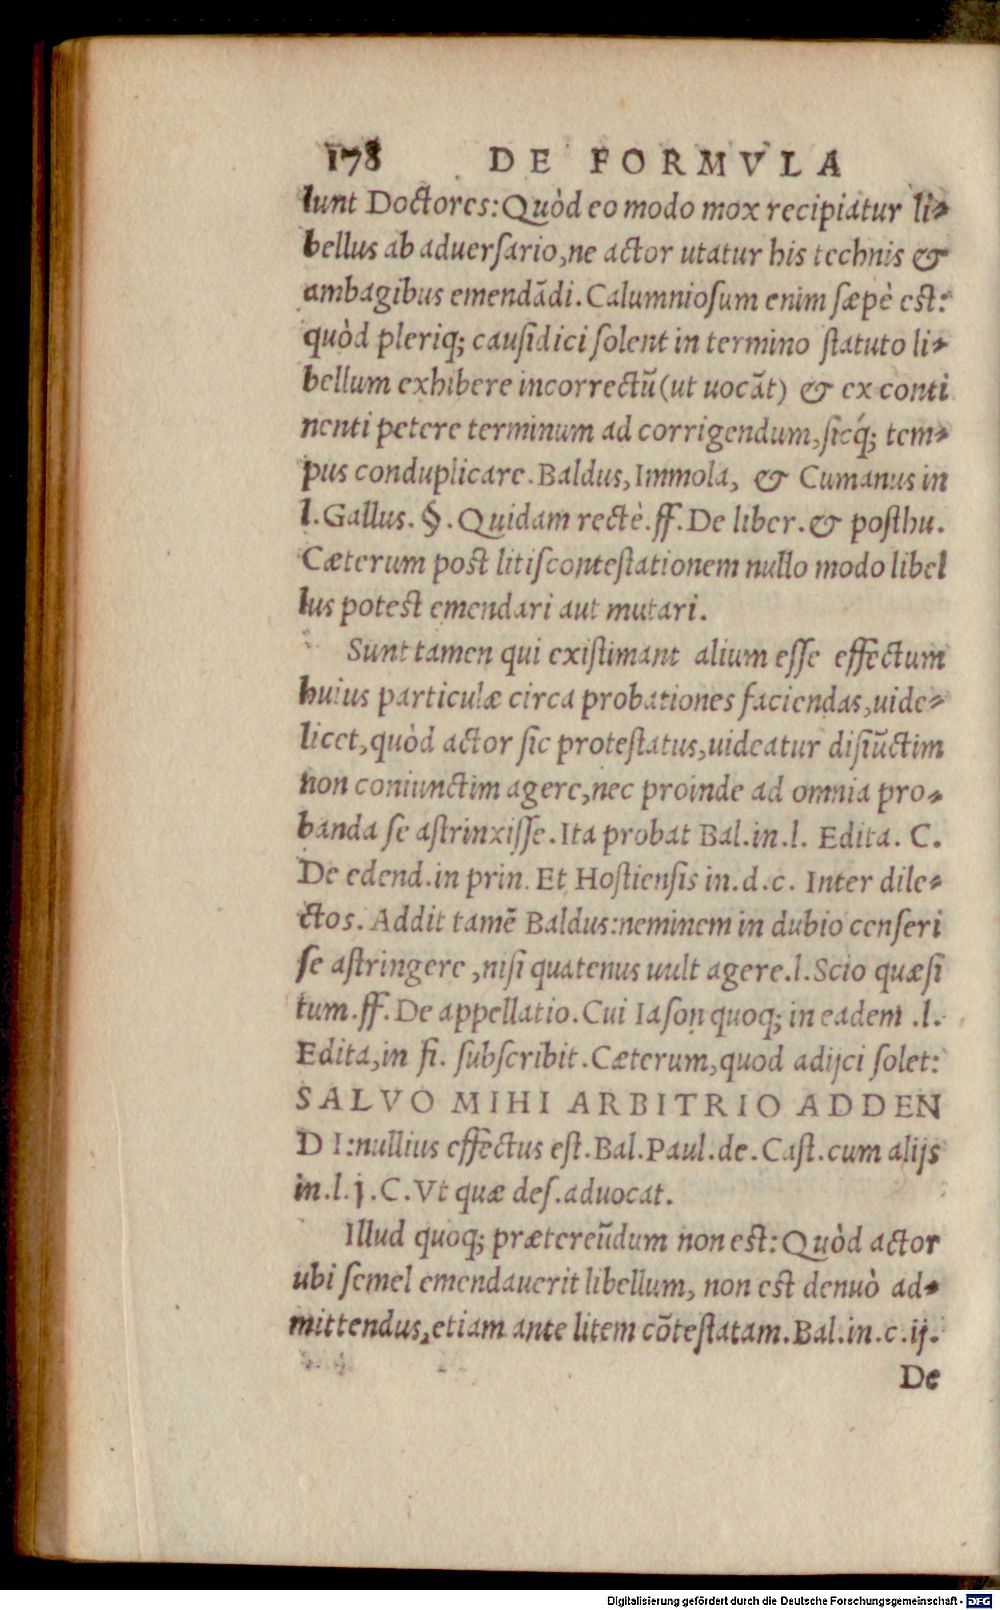 178 DE FORMVLA
lunt Doctores: Quòd eo modo mox recipiatur li-
bellus ab aduerſario, ne actor utatur his technis &
ambagibus emendādi. Calumnioſum enim ſæpè est:
quòd pleriq; cauſidici ſolent in termino ſtatuto li-
bellum exhibere incorrectū (ut uocāt) & ex conti
nenti petere terminum ad corrigendum, ſicq́; tem-
pus conduplicare. Baldus, Immola, & Cumanus in
l. Gallus. §. Quidam rectè. ff. De liber. & poſthu.
Cæterum post litiſconteſtationem nullo modo libel
lus potest emendari aut mutari.
Sunt tamen qui exiſtimant alium eſſe effectum
huius particulæ circa probationes faciendas, uide-
licet, quòd actor ſic proteſtatus, uideatur diſiūctim
non coniunctim agere, nec proinde ad omnia pro-
banda ſe aſtrinxiſſe. Ita probat Bal. in. l. Edita. C.
De edend. in prin. Et Hoſtienſis in. d. c. Inter dile-
ctos. Addit tamē Baldus: neminem in dubio cenſeri
ſe aſtringere, niſi quatenus uult agere. l. Scio quæſi
tum. ff. De appellatio. Cui Iaſon quoq; in eadem .l.
Edita, in fi. ſubſcribit. Cæterum, quod adijci ſolet:
SALVO MIHI ARBITRIO ADDEN
DI: nullius effectus eſt. Bal. Paul. de. Caſt. cum alijs
in. l. j. C. Vt quæ deſ. aduocat.
Illud quoq; prætereūdum non est: Quòd actor
ubi ſemel emendauerit libellum, non est denuò ad-
mittendus, etiam ante litem cōteſtatam. Bal. in. c. ij.
De
Digitalisierung gefördert durch die Deutsche Forschungsgemeinschaft - DFG